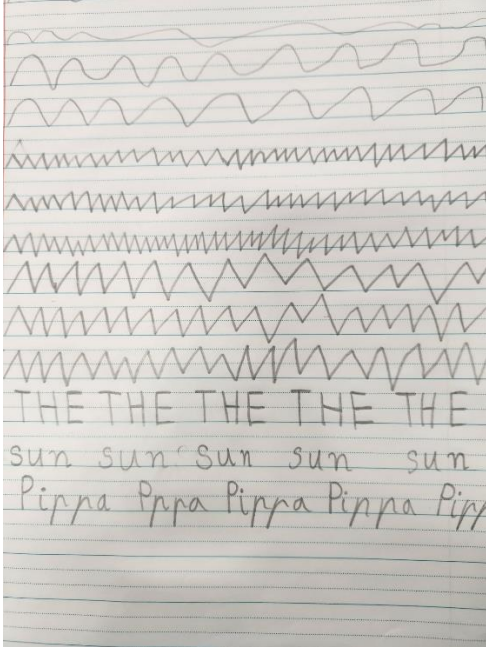 THE THE THE THE THE
sun sun sun sun sun
Pippa Pppa Pippa Pippa Pipp